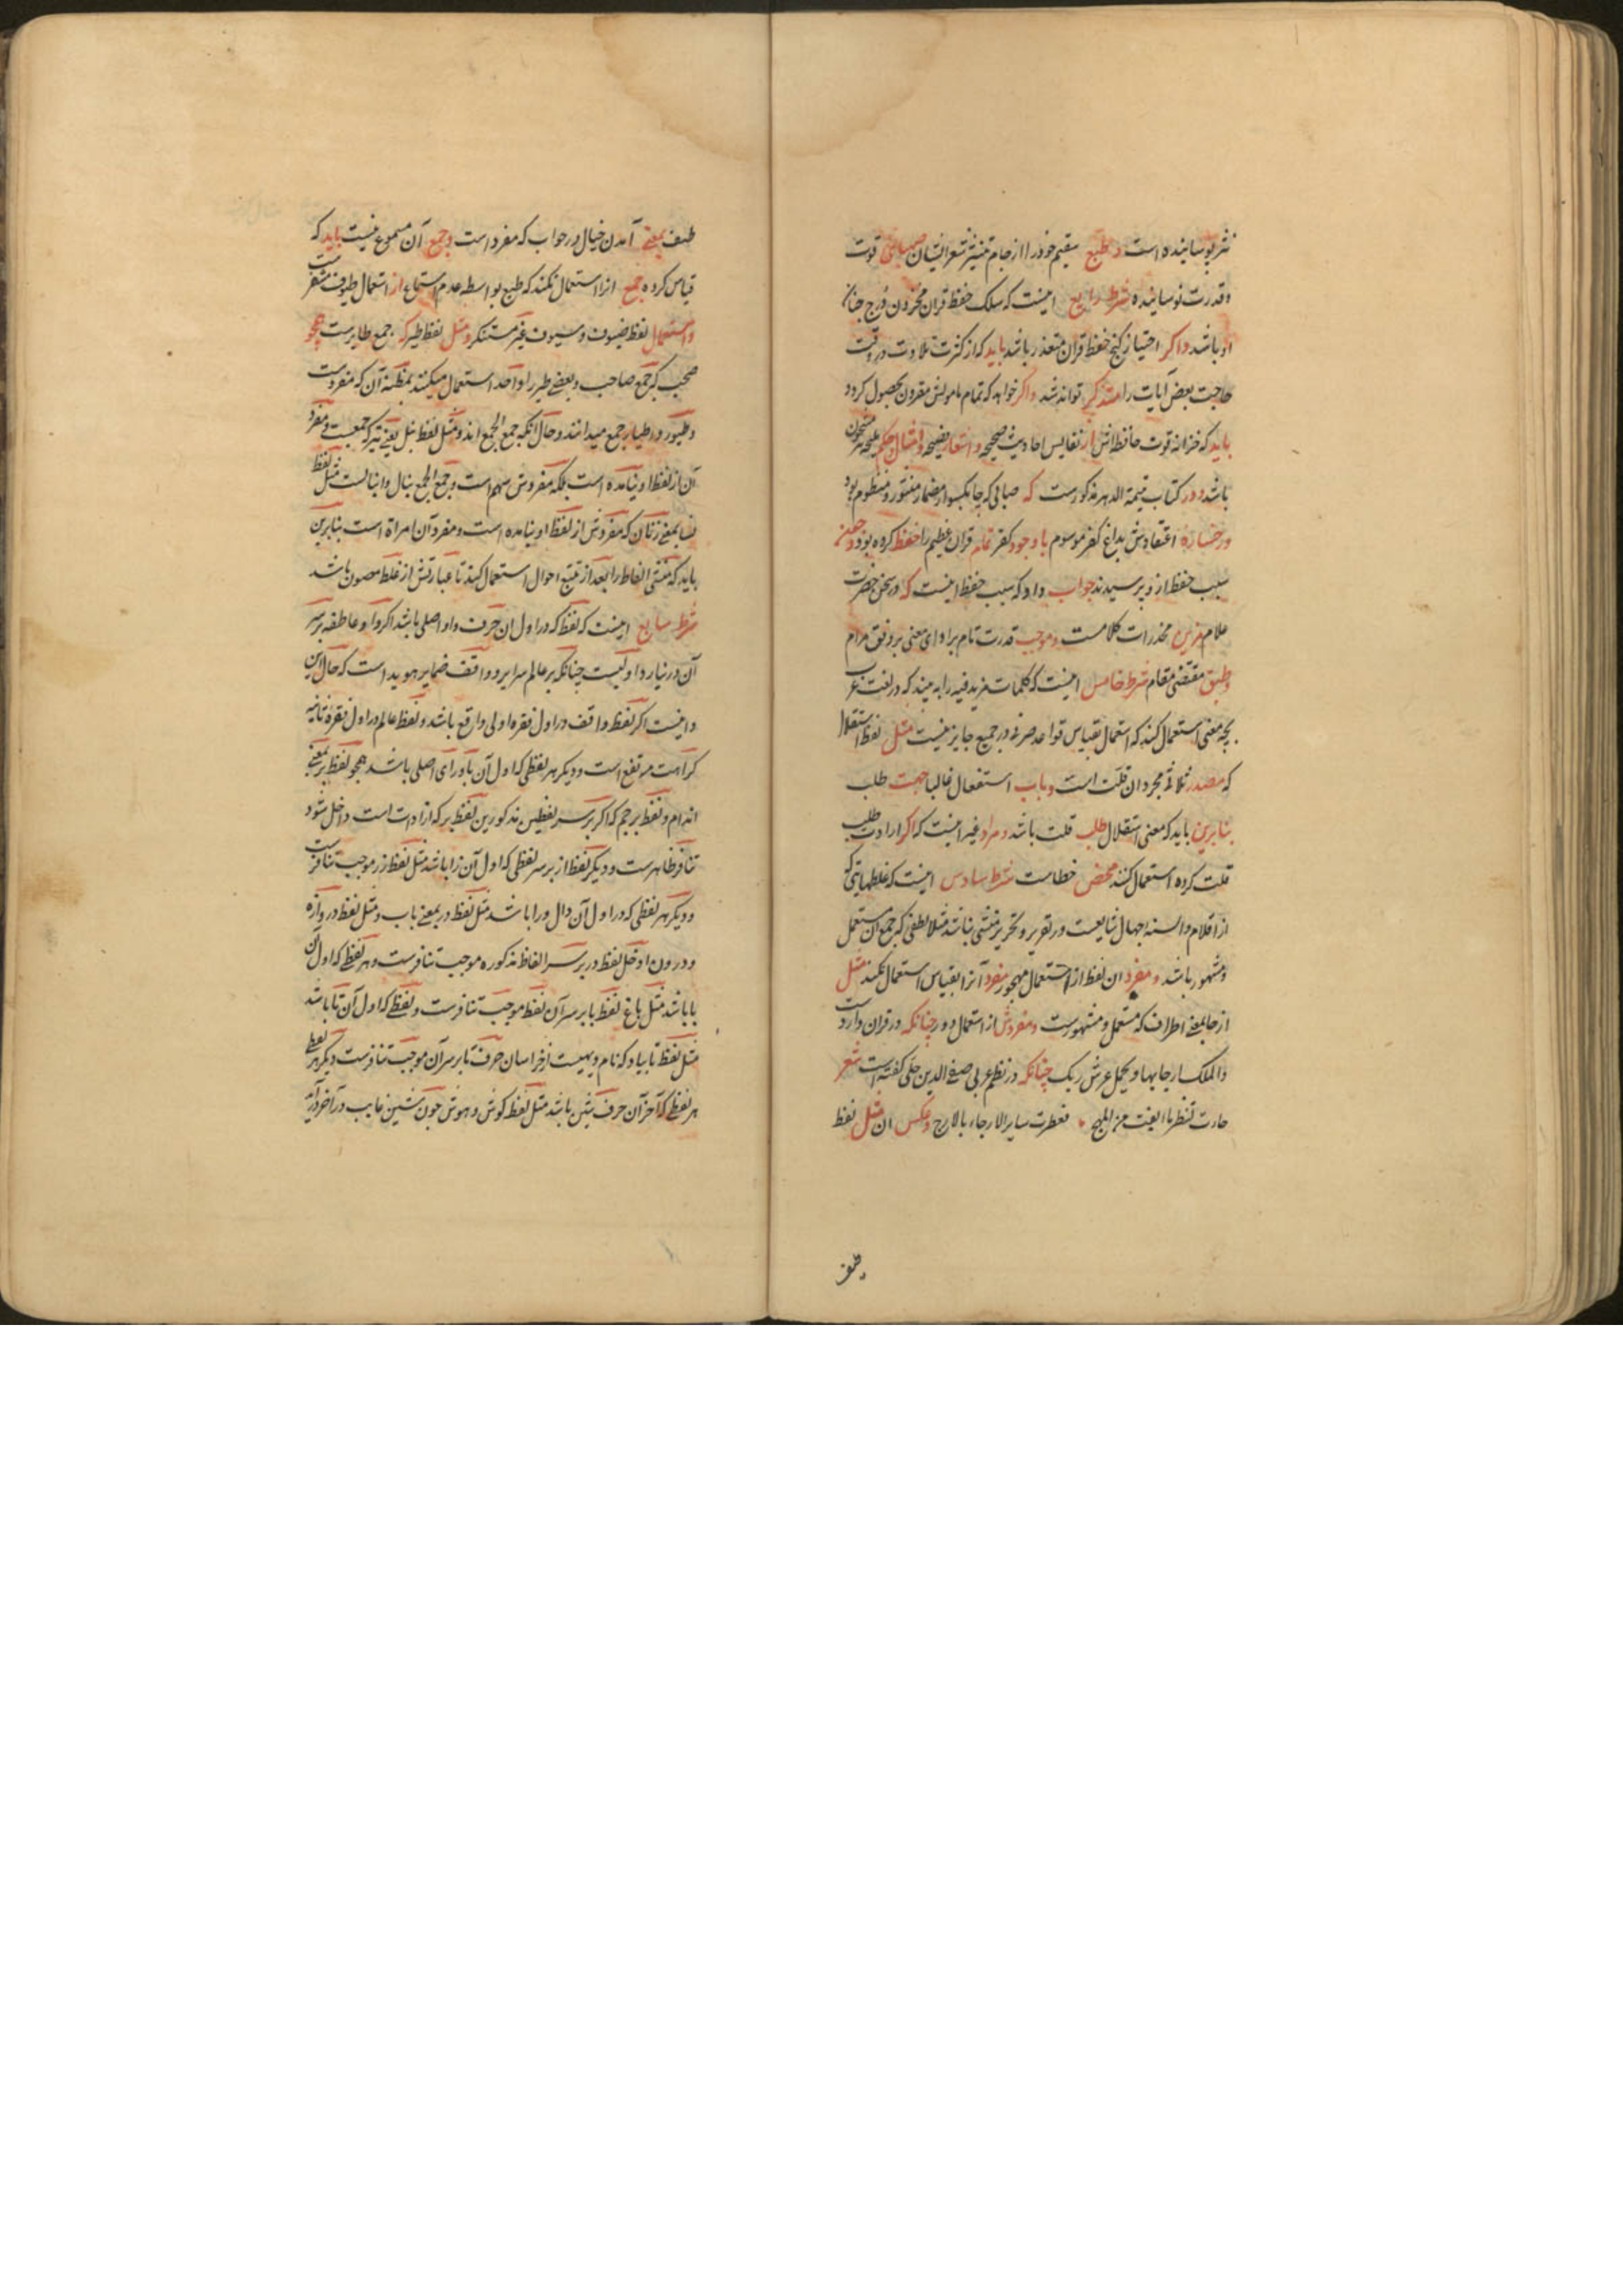 نثر پوسانیده است و طبع سقیم خود را از جام نثر شعر ایشان صهبای قوت
و قدرت نوسانیده شرط رابع اینست که سلک حفظ قران مخزون درج جنان
او باشد و اگر احتیاز گنج حفظ قران متعذر باشد باید که از کثرت تلاوت در وقت
حاجت بعض آیات را متذکر تواند شد و اگر خواهد که تمام مامولش مقرون بحصول گردد
باید که خزانه قوت حافظه اش از نفایس احادیث صحیحه و اشعار فصیحه و امثال و حکم ملیحه مشحون
باشد و در کتاب یتیمة الدهر مذکورست که صابی که چابکسوار مضمار منثور و منظوم بود
و رخساره اعتقادش بداغ کفر موسوم با وجود کفر تمام قران عظیم را حفظ کرده بود و بعضی
سبب حفظ از وی پرسیدند جواب داد که سبب حفظ اینست که در سخن حضرت
علام مزین مخدرات کلامست و موجب قدرت تام بر ادای معنی بر وفق مرام
و طبق مقتضی مقام شرط خامس اینست که کلمات مزید فیه را به بیند که در لغت عرب
بچه معنی استعمال کنند که استعمال بقیاس قواعد صرف در جمیع جایز نیست مثل لفظ استقلال
که مصدر ثلاثی مجرد ان قلت است و باب استفعال غالبا جهت طلب
بنابرین باید که معنی استقلال طلب قلت باشد و مراد غیر اینست که اگر ارادت طلب
قلت کرده استعمال کنند محض خطاست شرط سادس اینست که غلطهایی که
از اقلام و السنه جهال شایعست در تقریر و تحریر منشی نباشد مثلا لفظی که جمع آن مستعمل
و مشهور باشد و مفرد ان لفظ از استعمال مهجور مفرد آنرا بقیاس استعمال نکند مثل
ارجا بمعنی اطراف که مستعمل و مشهورست و مفردش از استعمال دور چنانکه در قران واردست
والملک علی ارجایها و یحمل عرش ربک چنانکه در نظم عربی صفی الدین حلی گفته است شعر
فعطرت سایر الارجاء بالارج و عکس ان مثل لفظ
طیف
طیف بمعنی آمدن خیال در خواب که مفرد است و جمع آن مسموع نیست باید که
قیاس کرده جمع انرا استعمال نکند که طبع بواسطه عدم استماع از استعمال طیوف متنفرست
و استعمال لفظ ضیوف و سیوف غیر مستنکر و مثل لفظ طیر که جمع طایرست همچو
صحب که جمع صاحب و بعضی طیر را واحد استعمال میکنند بمظنه آن که مفردست
و طیور و اطیار جمع میدانند و حال آنکه جمع الجمع اند و مثل لفظ نبل یعنی تیر که جمعست و مفرد
آن از لفظ او نیامده است بلکه مفردش سهم است و جمع الجمع نبال و انبالست مثل لفظ
نسا بمعنی زنان که مفردش از لفظ او نیامده است و مفرد آن امراة است بنابرین
باید که منشی الفاظ را بعد از تتبع احوال استعمال کند تا عبارتش از غلط مصون باشد
شرط سابع اینست که لفظ که در اول ان حرف واو اصلی باشد اگر واو عاطفه بر سر
آن در نیارد اولیست چنانکه بر عالم سرایر و واقف ضمایر هویداست که حال این
و اینست اگر لفظ واقف در اول فقره اولی واقع باشد و لفظ عالم در اول فقره ثانیه
کراهت مرتفع است و دیگر هر لفظی که اول آن با و رای اصلی باشد همچو لفظ بر بمعنی
اندام و لفظ برجم که اگر بر سر لفظین مذکورین لفظ بر که از ادات است داخل شود
تنافر ظاهرست و دیگر لفظ از بر سر لفظی که اول آن زا باشد مثل لفظ زر موجب تنافرست
و دیگر هر لفظی که در اول آن دال و را باشد مثل لفظ در بمعنی باب و مثل لفظ دروازه
و درون ادخل لفظ در بر سر الفاظ مذکوره موجب تنافرست و هر لفظی که اول آن
با باشد مثل باغ لفظ با بر سر آن لفظ موجب تنافرست و لفظی که اول آن تا باشد
مثل لفظ تایباد که نام دیهیست از خراسان حرف تا بر سر آن موجب تنافرست دیگر هر لفظی
هر لفظی که آخر آن حرف شین باشد مثل لفظ گوش و هوش چون شین غایب در آخر درآید